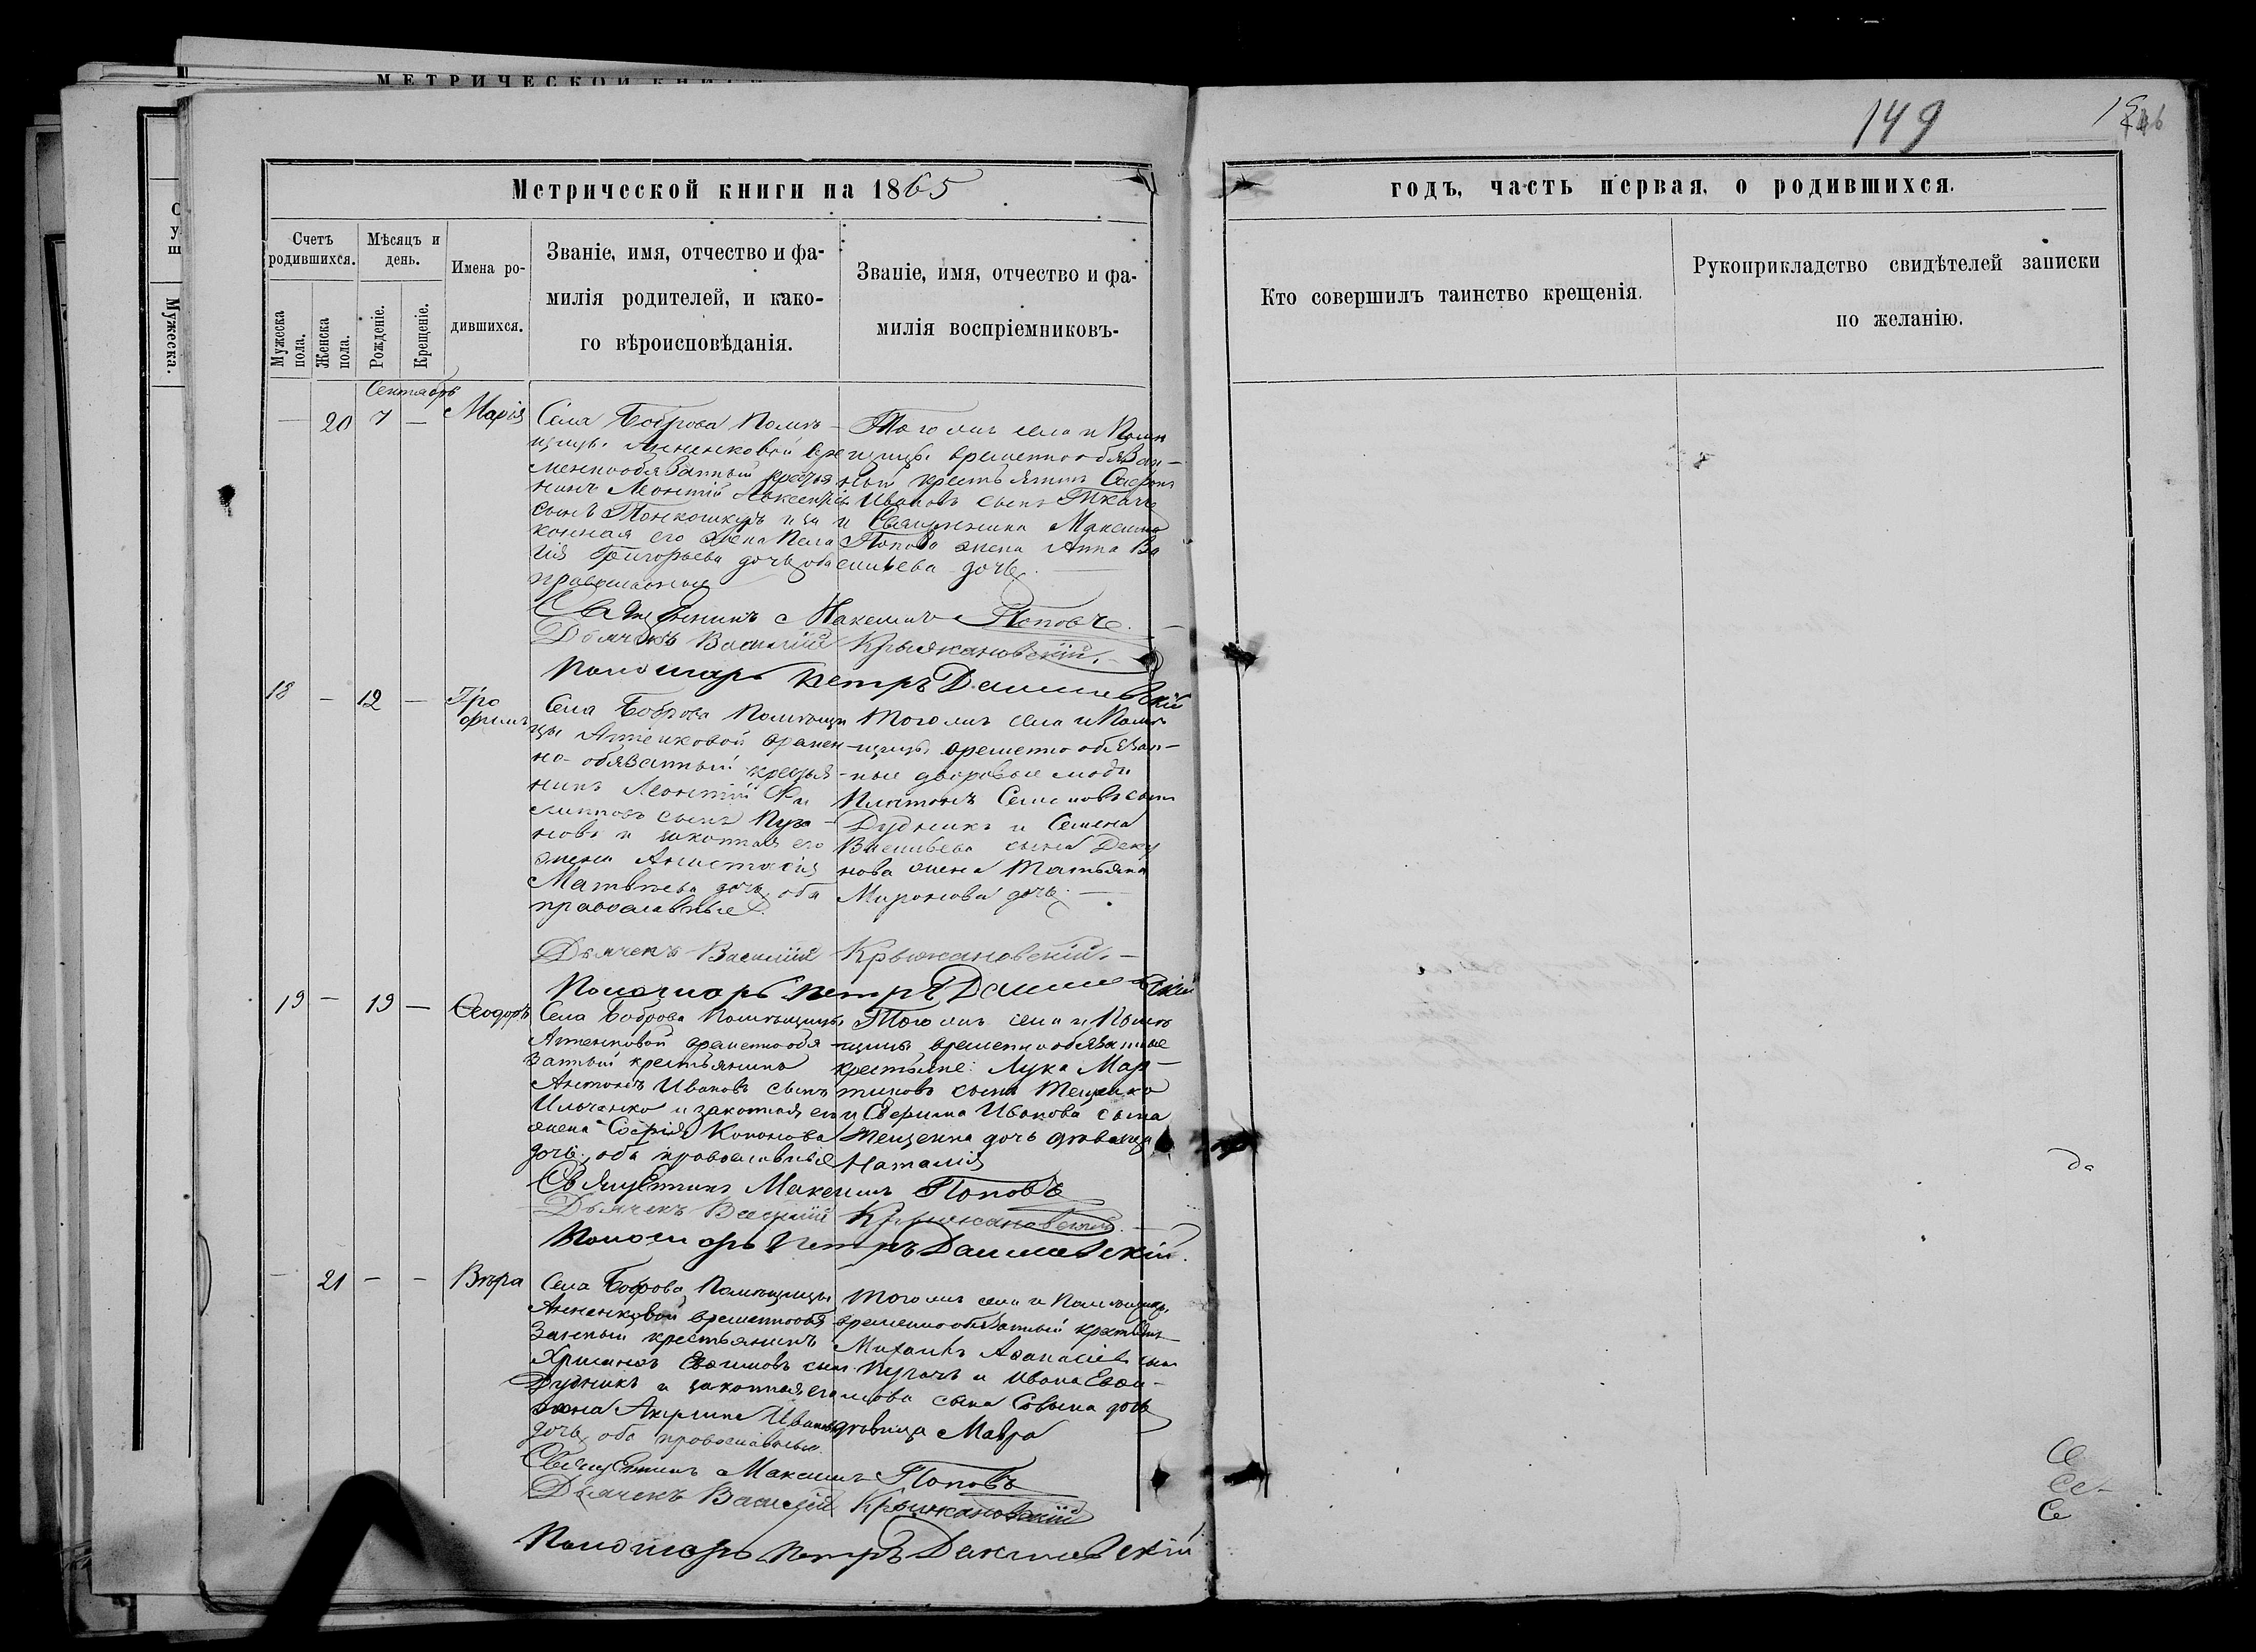 МЕТРИЧЕСКОЙ КНИГИ
149
Метрической книги на 1865
годъ, часть первая, о родившихся.
Счетъ родившихся.
Мужеска пола.
Женска пола.
Мѣсяцъ и день.
Рожденіе.
Крещеніе.
Имена родившихся.
Званіе, имя, отчество и фа-
милія родителей, и како-
го вѣроисповѣданія.
Званіе, имя, отчество и фа-
милія воспріемниковъ-
Кто совершилъ таинство крещенія.
Рукоприкладство свидѣтелей записки
по желанію.
Мужеска.
Сентябрь
— 20 7 — Марія
Села Боброва Помѣ-
щицы Анненковой вре
меннообязанный крестья
нинъ Леонтій
сынъ Тонкошкуръ и за
конная его жена Пела
гія Григорьева дочь, оба
православные
Того жъ села и Помѣ
щицы временнообязан-
ный крестьянинъ
Ивановъ сынъ Ткачъ
и Священника Максима
Попова жена Анна Ва
сильева дочь. —
Священникъ Максимъ Поповъ.
Дьячекъ Василій Крыжановскій. —
Пономарь Петръ Данилевскій
18 — 12 — Тро
фимъ
Села Боброва Помѣщи
цы Анненковой времен
но-обязанный крестья
нинъ Леонтій Фи
липповъ сынъ
и законная его
жена Анастасія
Матвѣева дочь, оба
православные.
Того жъ села и Помѣ
щицы временно обязан-
ные дворовые люди
Платонъ Семеновъ сынъ
Дудникъ и Семена
Васильева сына Деку
нова жена Татьяна
Миронова дочь. —
Дьячекъ Василій Крыжановскій. —
Пономарь Петръ Данилевскій
19 — 19 — Ѳеодоръ
Села Боброва Помѣщицы
Анненковой временнообя
занный крестьянинъ
Антонъ Ивановъ сынъ
Ильченко и законная его
жена Софія Кононова
дочь, оба православные
Того жъ села и Помѣ
щицы временнообязанные
крестьяне: Лука Мар-
тиновъ сынъ Тещенко
и Ивановой сына
Тещенка дочь дѣвица
Наталія
Священникъ Максимъ Поповъ
Дьячекъ Василій Крыжановскій. —
Пономарь Петръ Данилевскій.
— 21 — — Вѣра
Села Боброва, Помѣщицы
Анненковой временнообя
занный крестьянинъ
Евфимовъ сынъ
Дудникъ и законная его
жена Акулина Иванова
дочь, оба православные.
Того жъ села и Помѣщицы
временнообязанный крестьянинъ
Михаилъ Аѳанасіевъ сынъ
Пугачъ и Ивана Евфи-
мова сына дочь
дѣвица Мавра
Священникъ Максимъ Поповъ
Дьячекъ Василій Крыжановскій
Пономарь Петръ Данилевскій